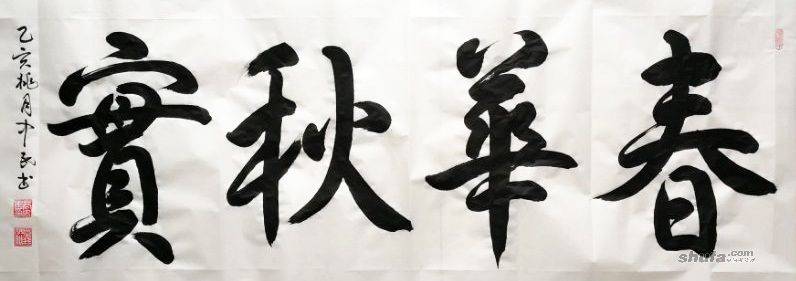 春華秋實
乙亥桃月中民书
shufa.com